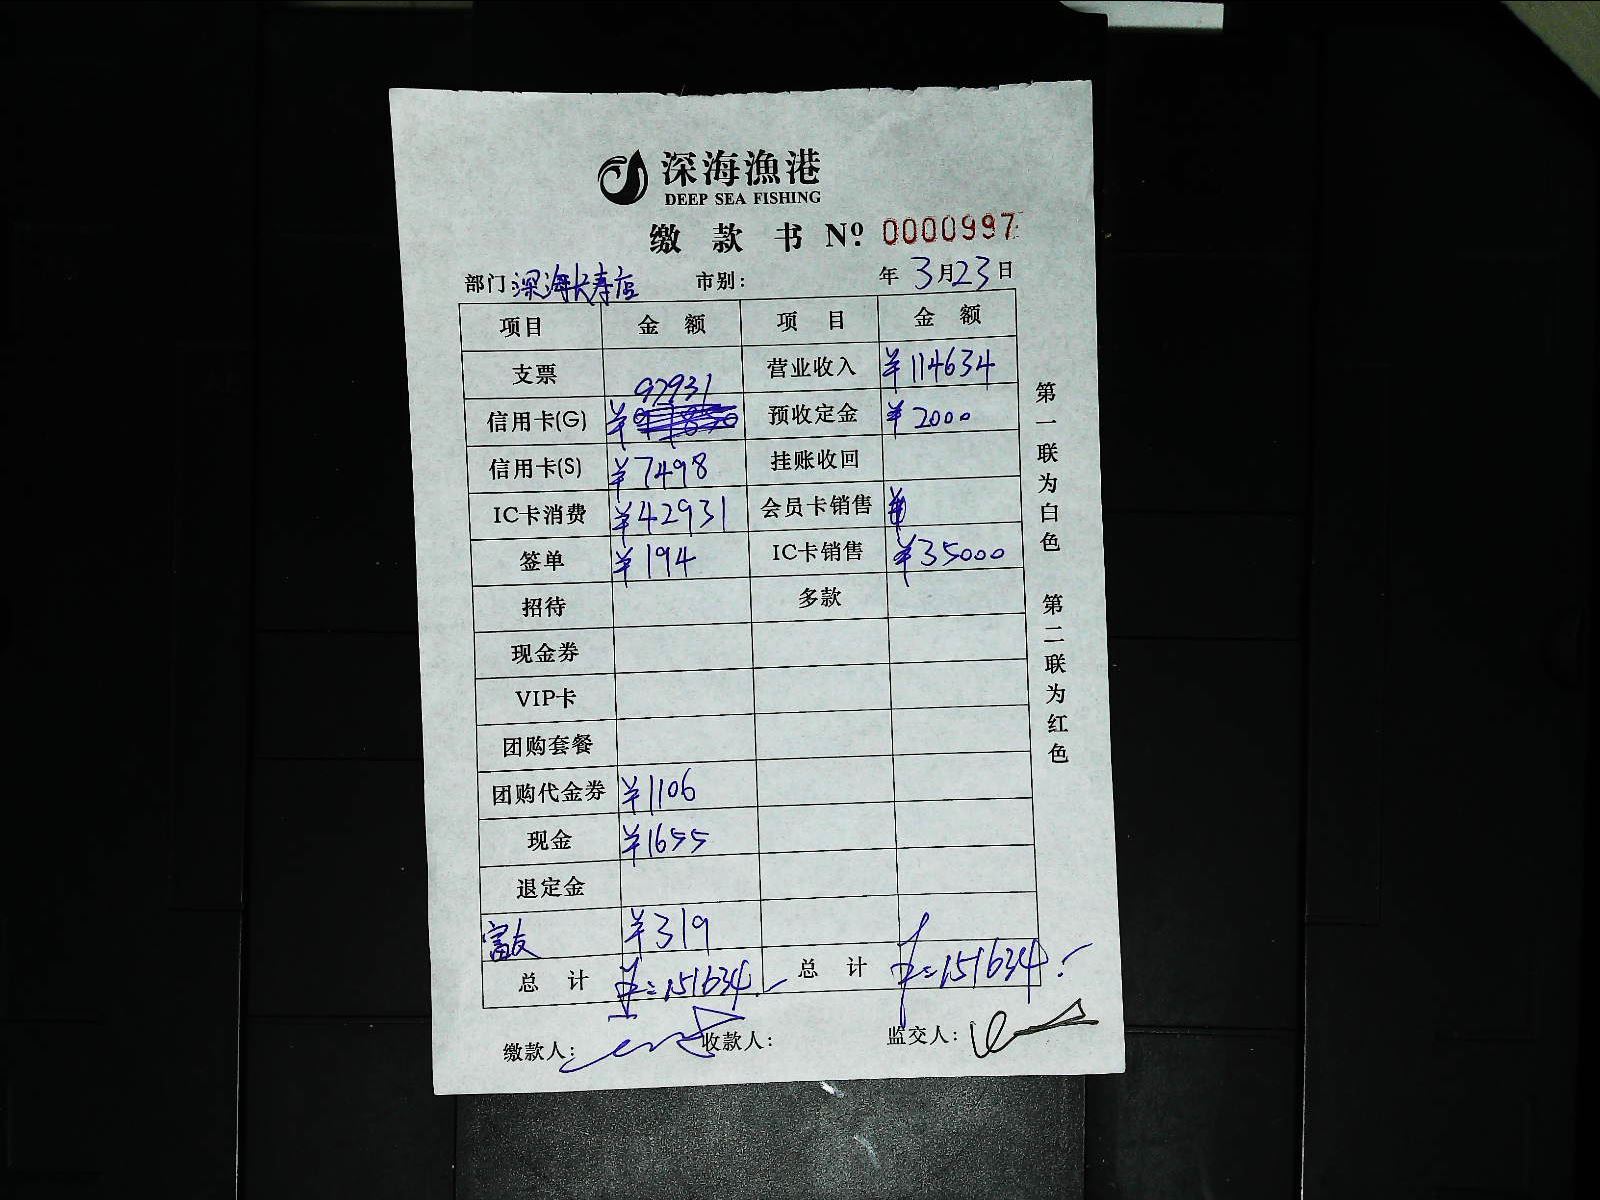 深海漁港
DEEP SEA FISHING
缴款书 Nº 0000997
部门:深海长寿店 市别: 年3月23日
项目 金额 项目 金额
支票 营业收入 ¥114634
信用卡(G) ¥97931 预收定金 ¥2000
信用卡(S) ¥7498 挂账收回
IC卡消费 ¥42931 会员卡销售 ¥
签单 ¥194 IC卡销售 ¥35000
招待 多款
现金券
VIP卡
团购套餐
团购代金券 ¥1106
现金 ¥1655
退定金
富友 ¥319
总计 ¥:151634. 总计 ¥:151634.
缴款人: 收款人: 监交人:
第一联为白色 第二联为红色